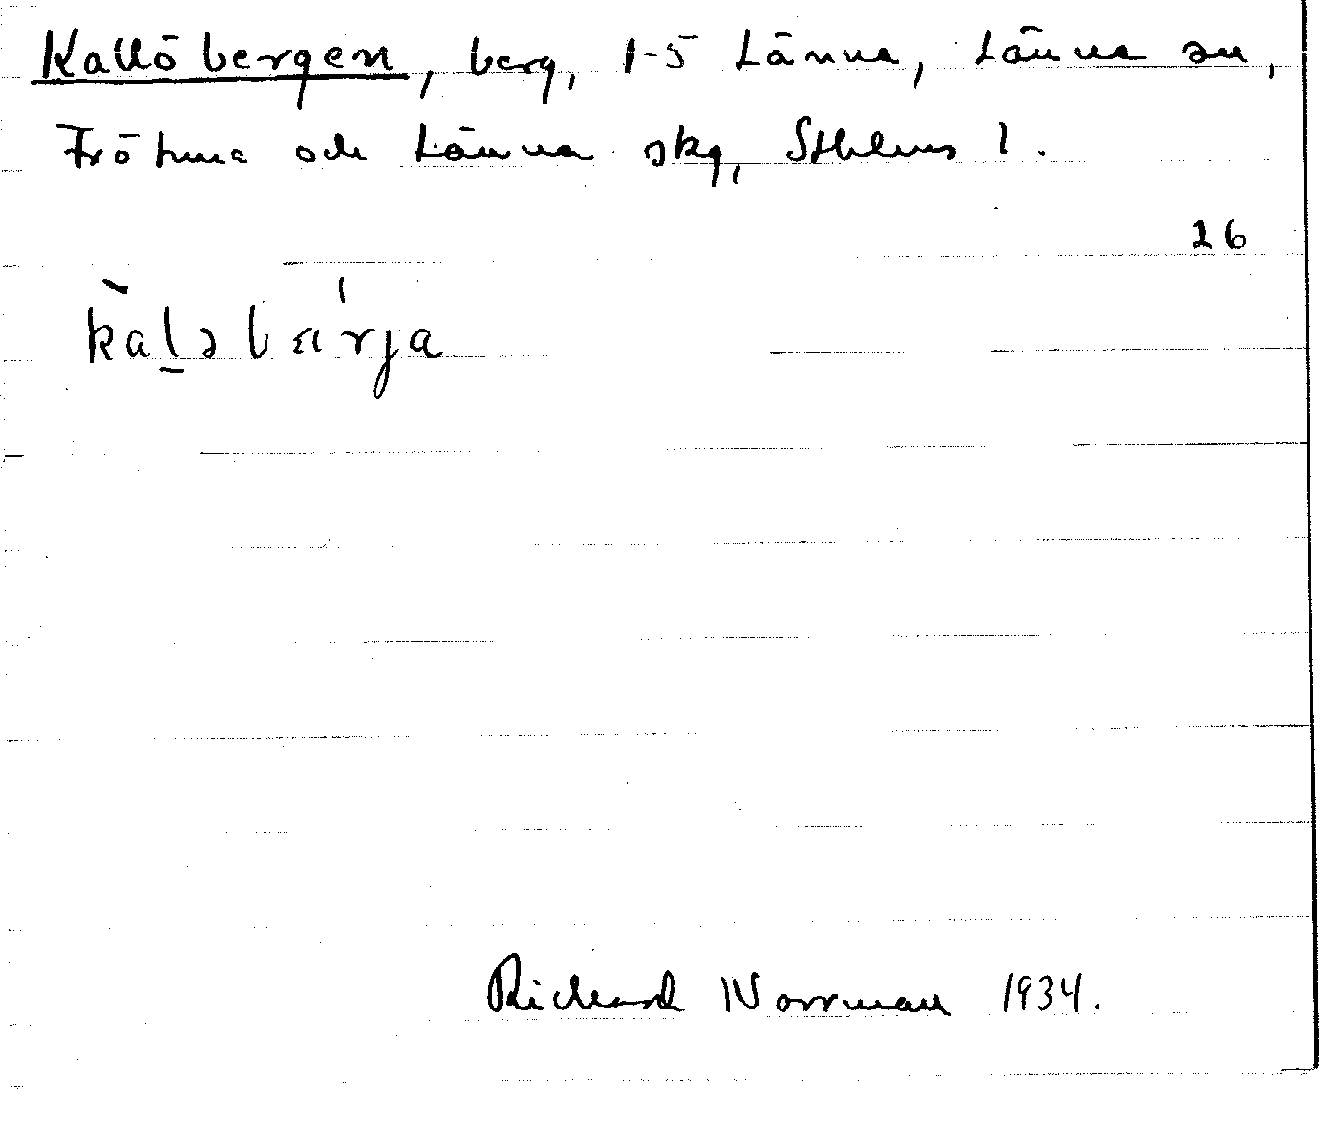 Kallöbergen, berg, 1-5 Länna, Länna sn,
Frötuna och Länna skg, Sthlms l.
26
kàḷɔbæ̍rja
Richard Norrman 1934.